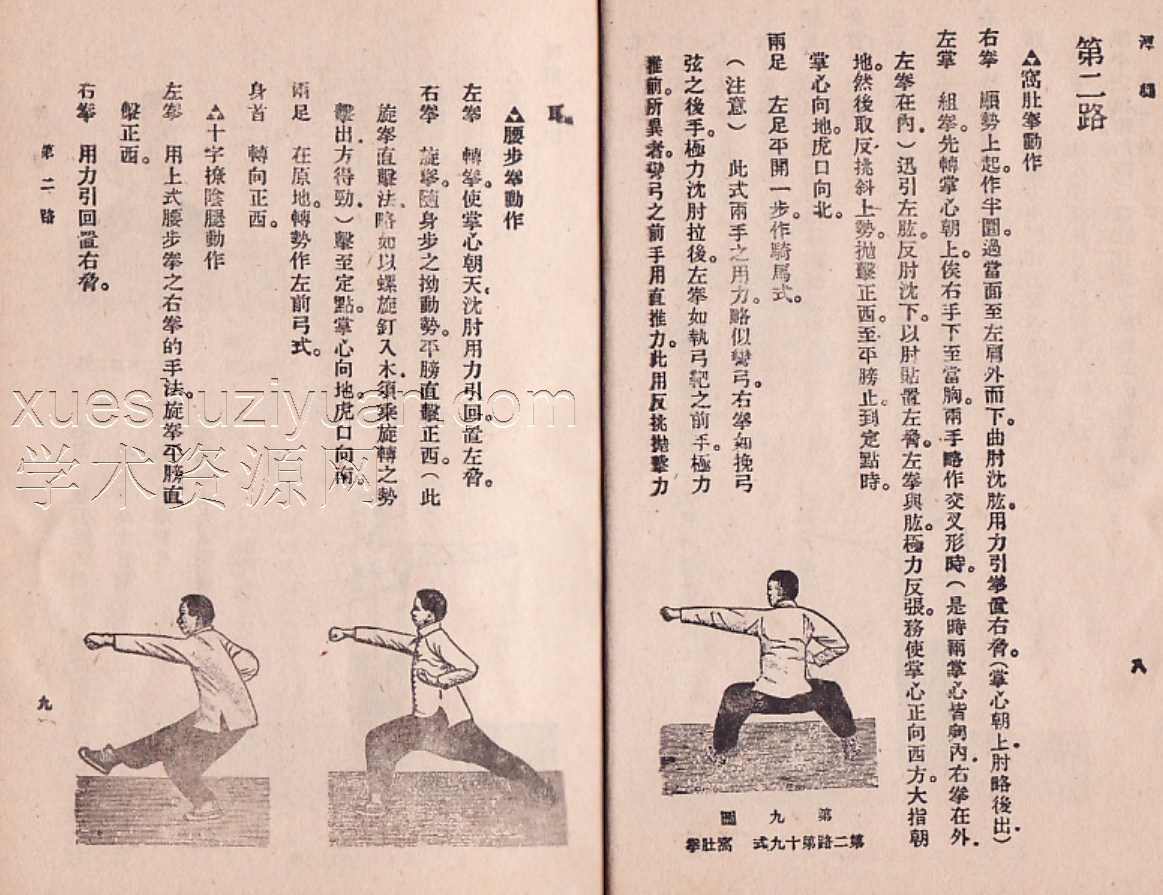 潭 腿
第二路
窩肚拳動作
右拳 順勢上起。作半圓。過當面至左肩外而下。曲肘沈肱。用力引拳置右脅。(掌心朝上。肘略後出)
左掌 組拳。先轉掌心朝上。俟右手下至當胸。兩手略作交叉形時。(是時兩掌心皆朝內。右拳在外。
左拳在內。)迅引左肱。反肘沈下。以肘貼置左脅。左拳與肱。極力反張。務使掌心正向西方。大指朝
地。然後取反挑斜上勢。拋擊正西。至平膀止。到定點時。
掌心向地。虎口向北。
兩足 左足平開一步。作騎馬式。
(注意) 此式兩手之用力。略似彎弓。右拳如挽弓
弦之後手。極力沈肘拉後。左拳如執弓靶之前手。極力
推前。所異者。彎弓之前手用直推力。此用反挑拋擊力
八
第九圖
第二路第十九式 窩肚拳
耳
腰步拳動作
左拳 轉拳。使掌心朝天。沈肘用力引回。置左脅。
右拳 旋拳。隨身步之拗動勢。平膀直擊正西。(此
旋拳直擊法。略如以螺旋釘入木。須乘旋轉之勢
擊出。方得勁。)擊至定點。掌心向地。虎口向南。
兩足 在原地。轉勢作左前弓式。
身首 轉向正西。
十字撩陰腿動作
左拳 用上式腰步拳之右拳的手法。旋拳平膀直
擊正西。
右拳 用力引回。置右脅。
第二路
九
xueshuziyuan.com
学术资源网